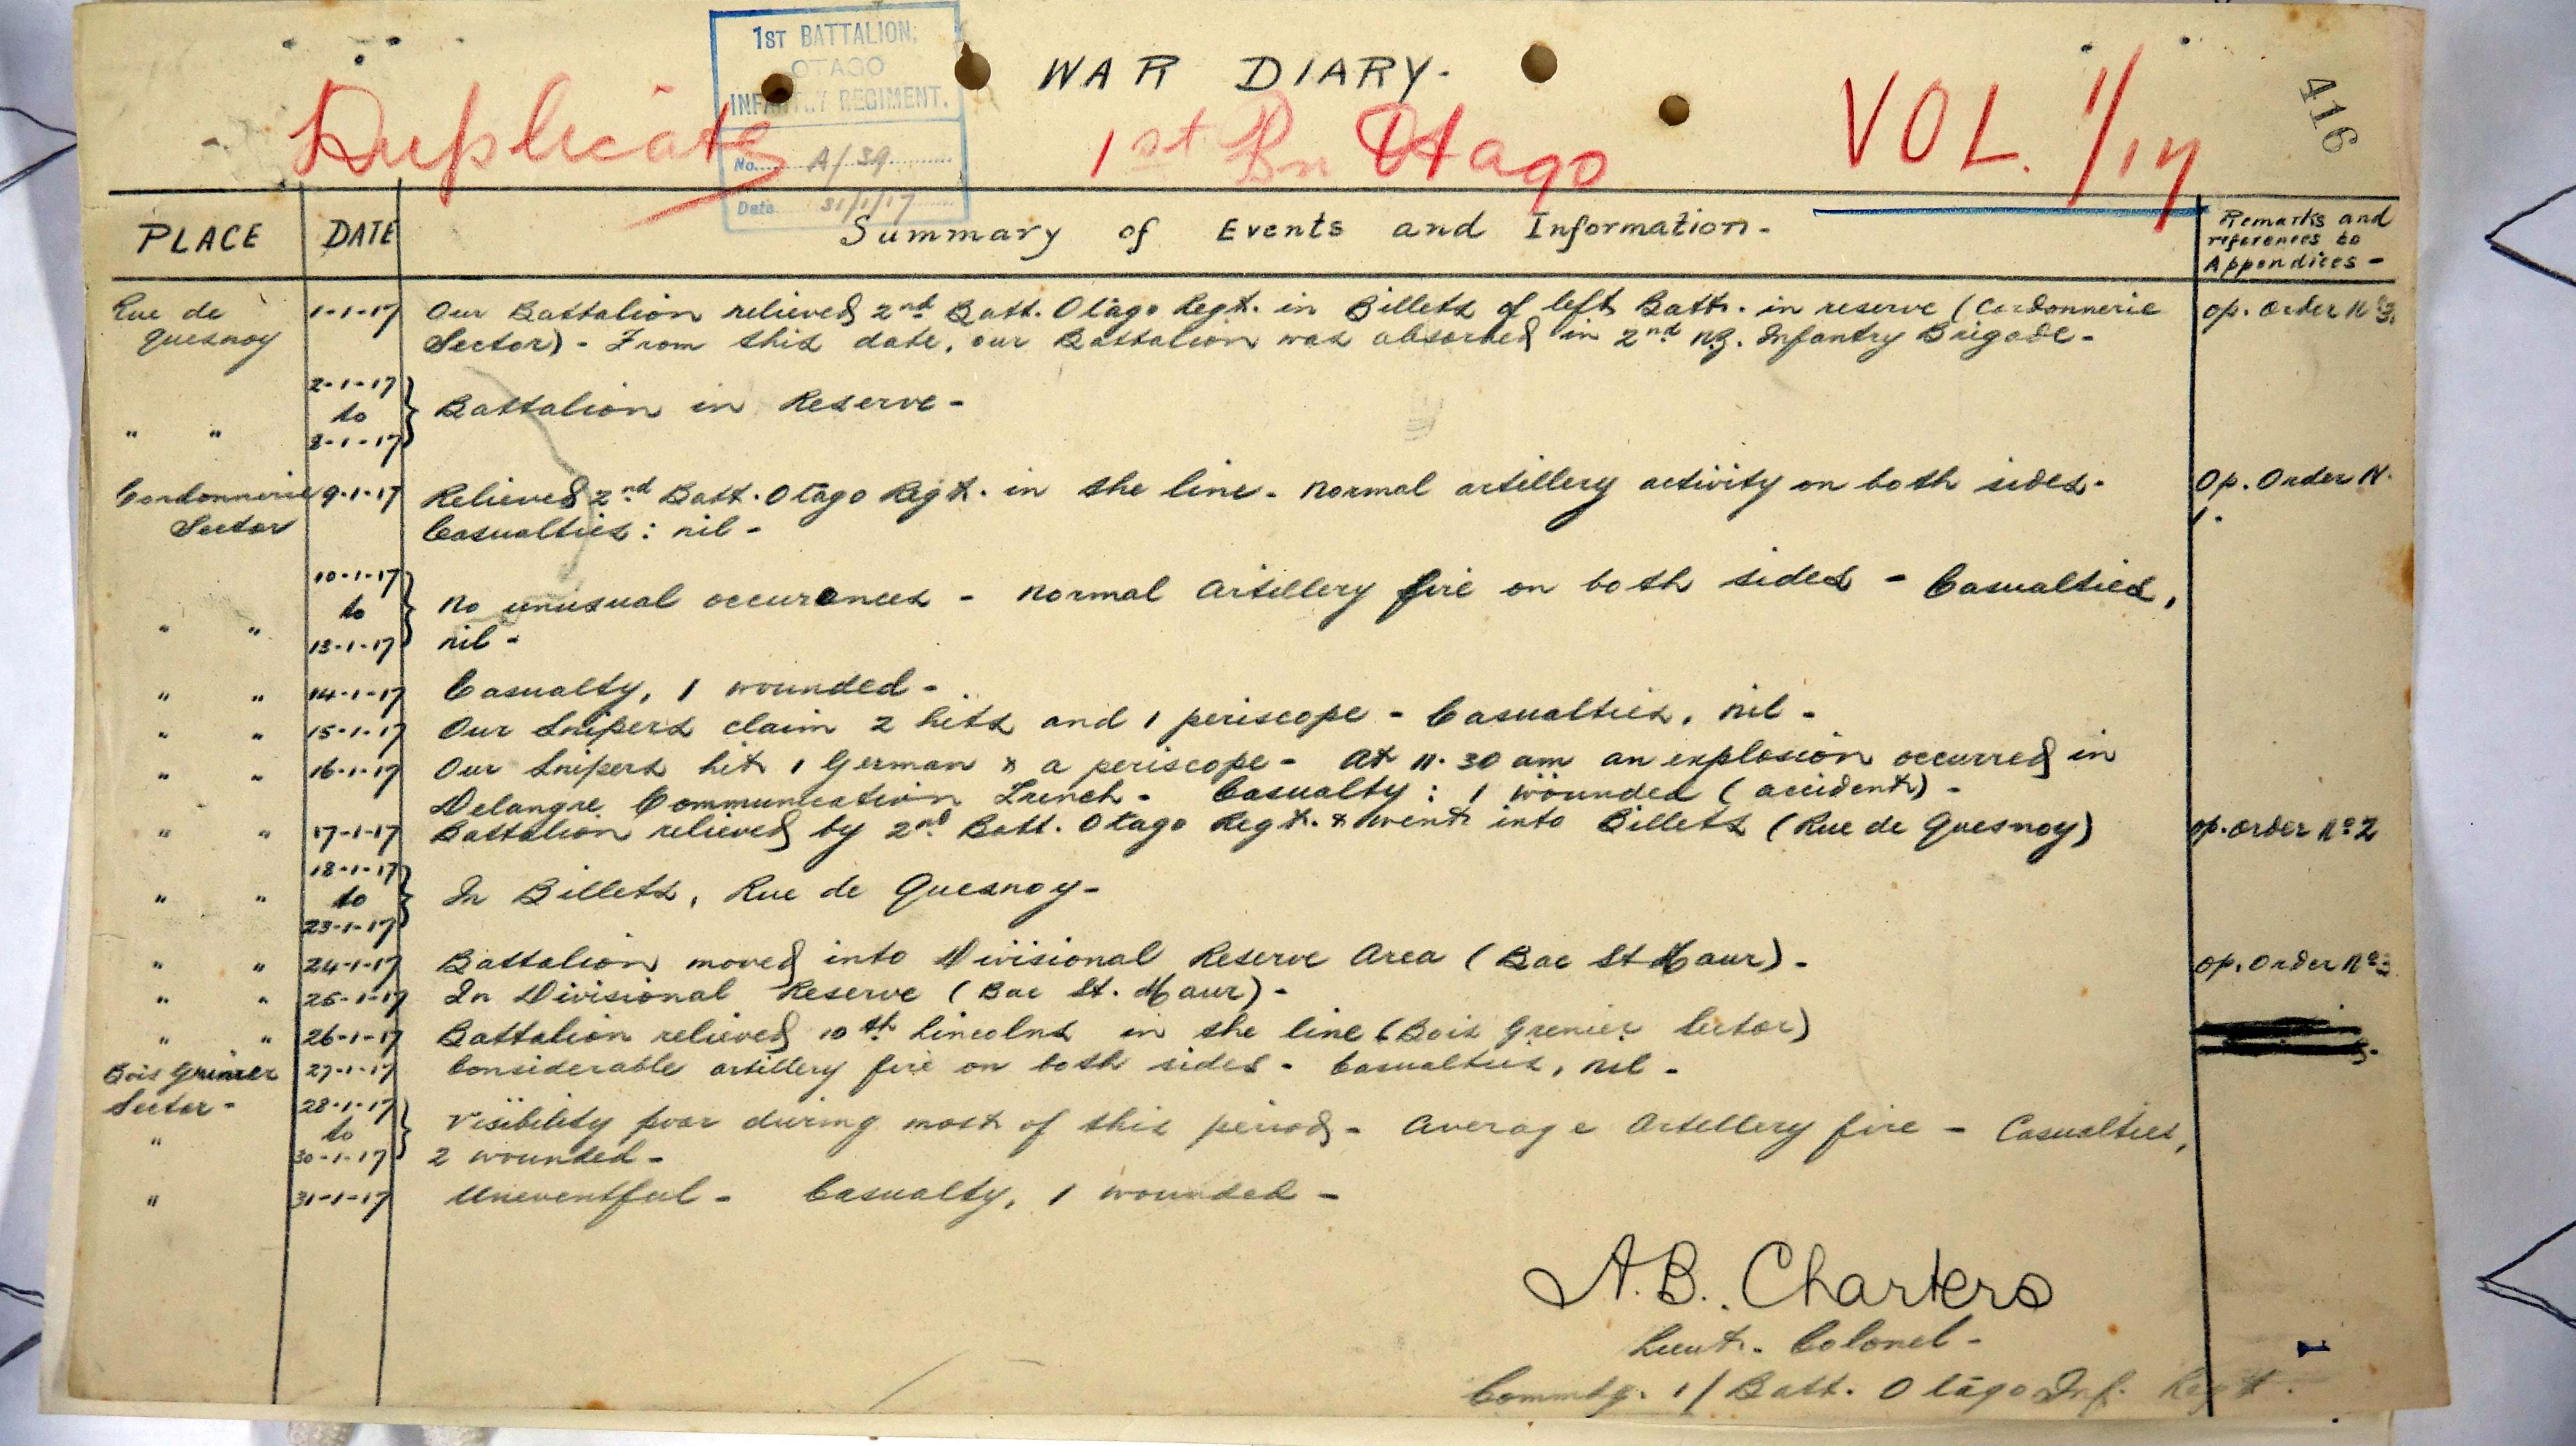 1ST BATTALION,
OTAGO
INFANTRY REGIMENT.
No. A/39
Date 31/1/17
WAR DIARY-
416
Duplicate
1st Bn Otago
VOL. 1/17
PLACE DATE Summary of Events and Information- Remarks and
references to
Appendices-
Rue de 1-1-17 Our Battalion relieved 2nd Batt. Otago Regt. in Billets of left Batt. in reserve (Cordonnerie op. order No 3.
Quesnoy Sector) - From this date, our Battalion was absorbed in 2nd NZ. Infantry Brigade-
2-1-17
to Battalion in Reserve-
" " 8-1-17
Cordonnerie 9-1-17 Relieved 2nd Batt. Otago Regt. in the line- Normal artillery activity on both sides- Op. Order N.
Sector Casualties: nil- 1.
10-1-17
to No unusual occurences - Normal Artillery fire on both sides - Casualties,
" " 13-1-17 nil-
" " 14-1-17 Casualty, 1 wounded-
" " 15-1-17 Our Snipers claim 2 hits and 1 periscope - Casualties, nil-
" " 16-1-17 Our Snipers hit 1 German & a periscope- At 11.30 am an explosion occurred in
Delangre Communication Trench- Casualty: 1 wounded (accident)-
" " 17-1-17 Battalion relieved by 2nd Batt. Otago Regt. & went into Billets (Rue de Quesnoy) op. order No 2
18-1-17
" " to In Billets, Rue de Quesnoy-
23-1-17
" " 24-1-17 Battalion moved into Divisional Reserve Area (Bac St Maur)- op. Order No 3
" " 25-1-17 In Divisional Reserve (Bac St. Maur)-
" " 26-1-17 Battalion relieved 10th Lincolns in the line (Bois Grenier Sector)
Bois Grenier 27-1-17 Considerable artillery fire on both sides- Casualties, nil-
Sector- 28-1-17
" to Visibility poor during most of this period- Average Artillery fire - Casualties,
30-1-17 2 wounded-
" 31-1-17 Uneventful- Casualty, 1 wounded-
A.B. Charters
Lieut. Colonel-
Commdg. 1/ Batt. Otago Inf. Regt.
1